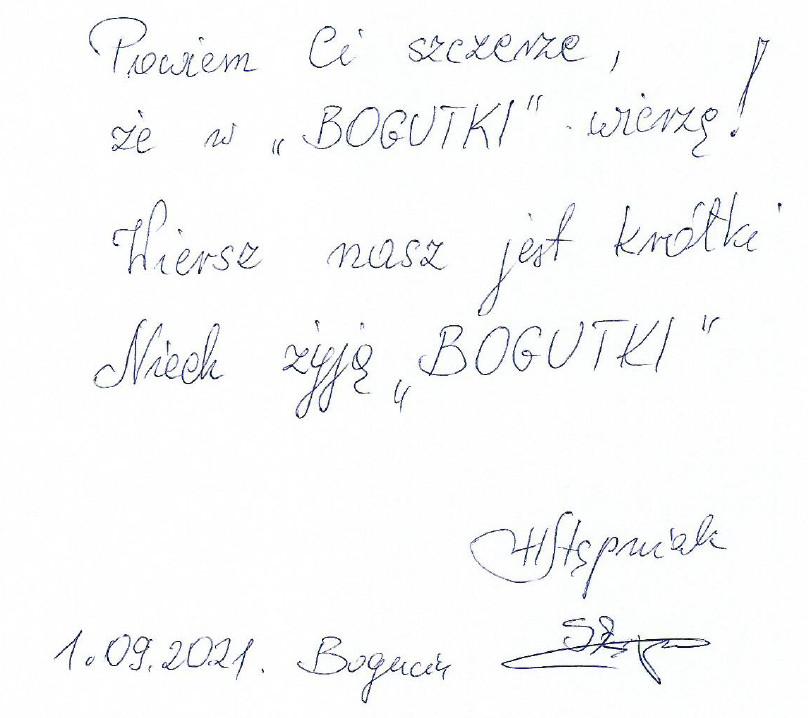 Powiem Ci szczerze,
że w „BOGUTKI” wierzę!
Wiersz nasz jest krótki
Niech żyją „BOGUTKI”
HStępniak
1.09.2021. Bogucin